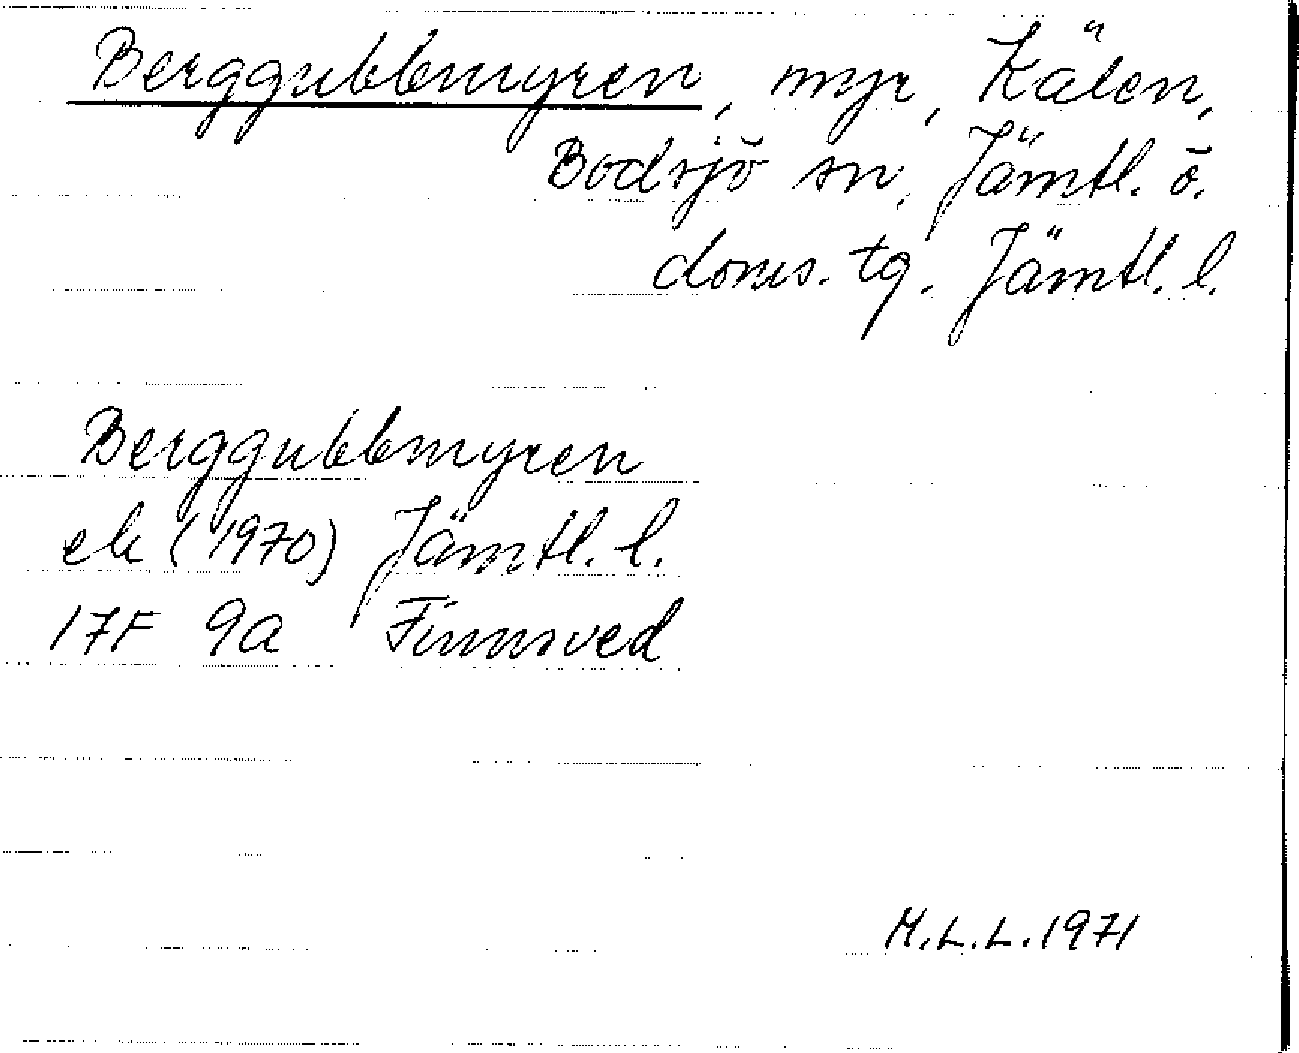 Berggubbmyren, myr, Kälen,
Bodsjö sn, Jämtl. ö.
doms. tg. Jämtl. l.
Berggubbmyren
ek (1970) Jämtl. l.
17F 9a Finnsved
M.L.L. 1971